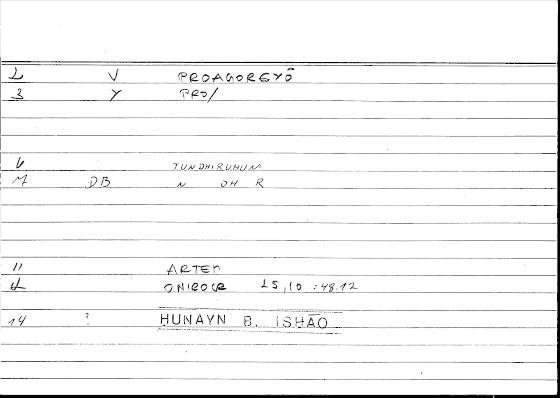 2 V PROAGOREYŌ
3 Y PRO/
6 TUNDHIRUHUM
M DB N DH R
11 ARTEM
d ONIROCR 25,10 :48.12
14 ? HUNAYN B. ISHĀQ